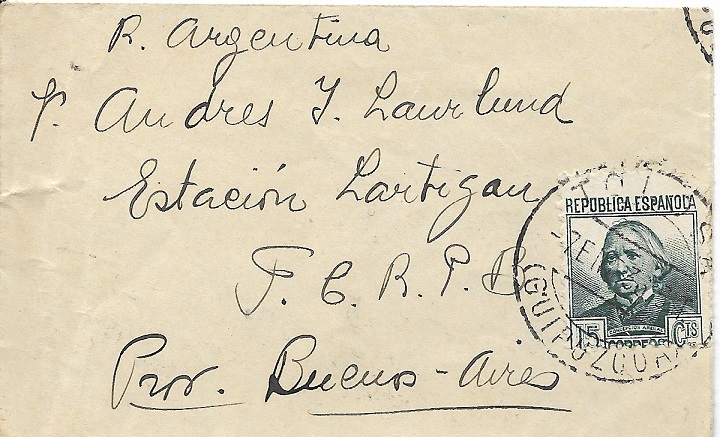 R. Argentina
Sr. Andres J. Laurlund
Estación Lartigau
F. C. R. P. B
Prov. Buenos-Aires
TOLOSA
(GUIPUZCOA)
REPUBLICA ESPAÑOLA
CONCEPCION ARENAL
15 CTS
CORREOS